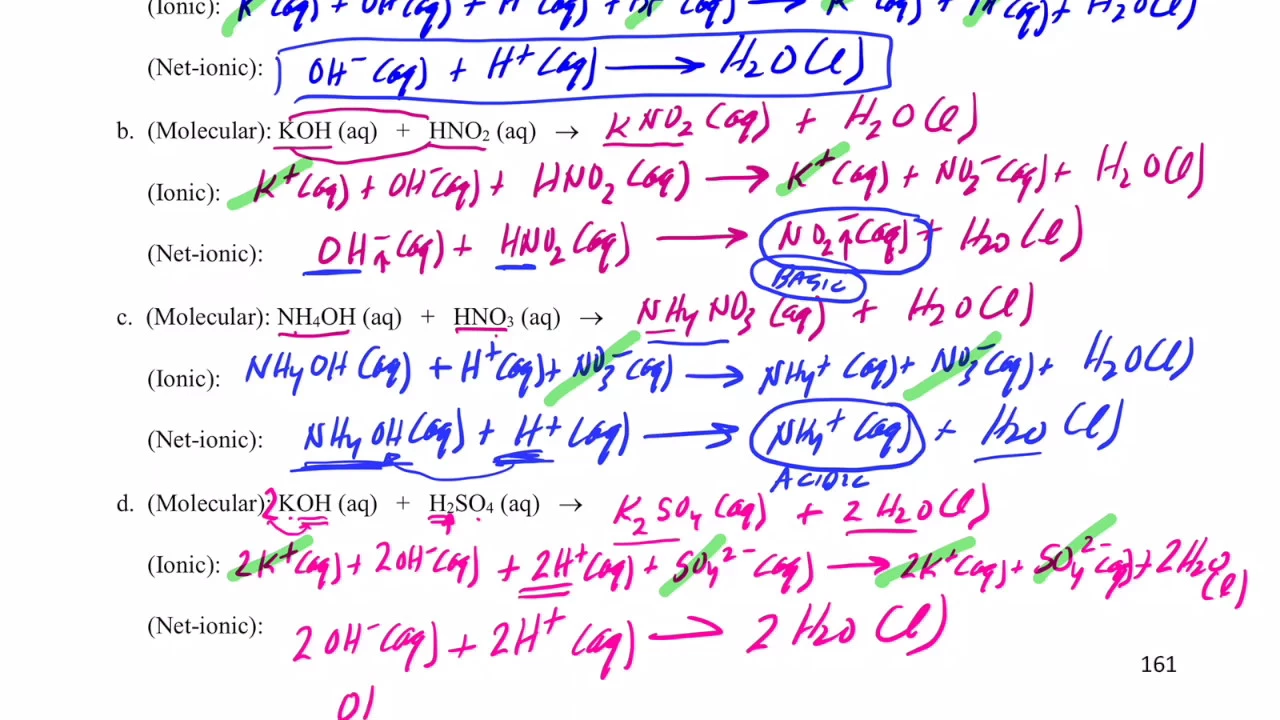 (Ionic): K⁺(aq) + OH⁻(aq) + H⁺(aq) + (aq) → K⁺(aq) + (aq) + H₂O(l)
(Net-ionic): OH⁻(aq) + H⁺(aq) → H₂O(l)
b. (Molecular): KOH (aq) + HNO₂ (aq) → KNO₂(aq) + H₂O(l)
(Ionic): K⁺(aq) + OH⁻(aq) + HNO₂(aq) → K⁺(aq) + NO₂⁻(aq) + H₂O(l)
(Net-ionic): OH⁻(aq) + HNO₂(aq) → NO₂⁻(aq) + H₂O(l)
BASIC
c. (Molecular): NH₄OH (aq) + HNO₃ (aq) → NH₄NO₃(aq) + H₂O(l)
(Ionic): NH₄OH(aq) + H⁺(aq) + NO₃⁻(aq) → NH₄⁺(aq) + NO₃⁻(aq) + H₂O(l)
(Net-ionic): NH₄OH(aq) + H⁺(aq) → NH₄⁺(aq) + H₂O(l)
ACIDIC
d. (Molecular): 2KOH (aq) + H₂SO₄ (aq) → K₂SO₄(aq) + 2H₂O(l)
(Ionic): 2K⁺(aq) + 2OH⁻(aq) + 2H⁺(aq) + SO₄²⁻(aq) → 2K⁺(aq) + SO₄²⁻(aq) + 2H₂O(l)
(Net-ionic): 2OH⁻(aq) + 2H⁺(aq) → 2H₂O(l)
161